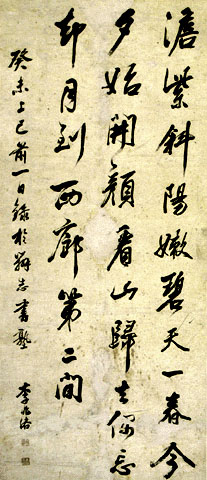 澹紫斜陽嫩碧天一春今
夕始開顏看山歸去偏忘
却月到西廊第二間
癸未上巳前一日錄於辨志書塾
李兆洛